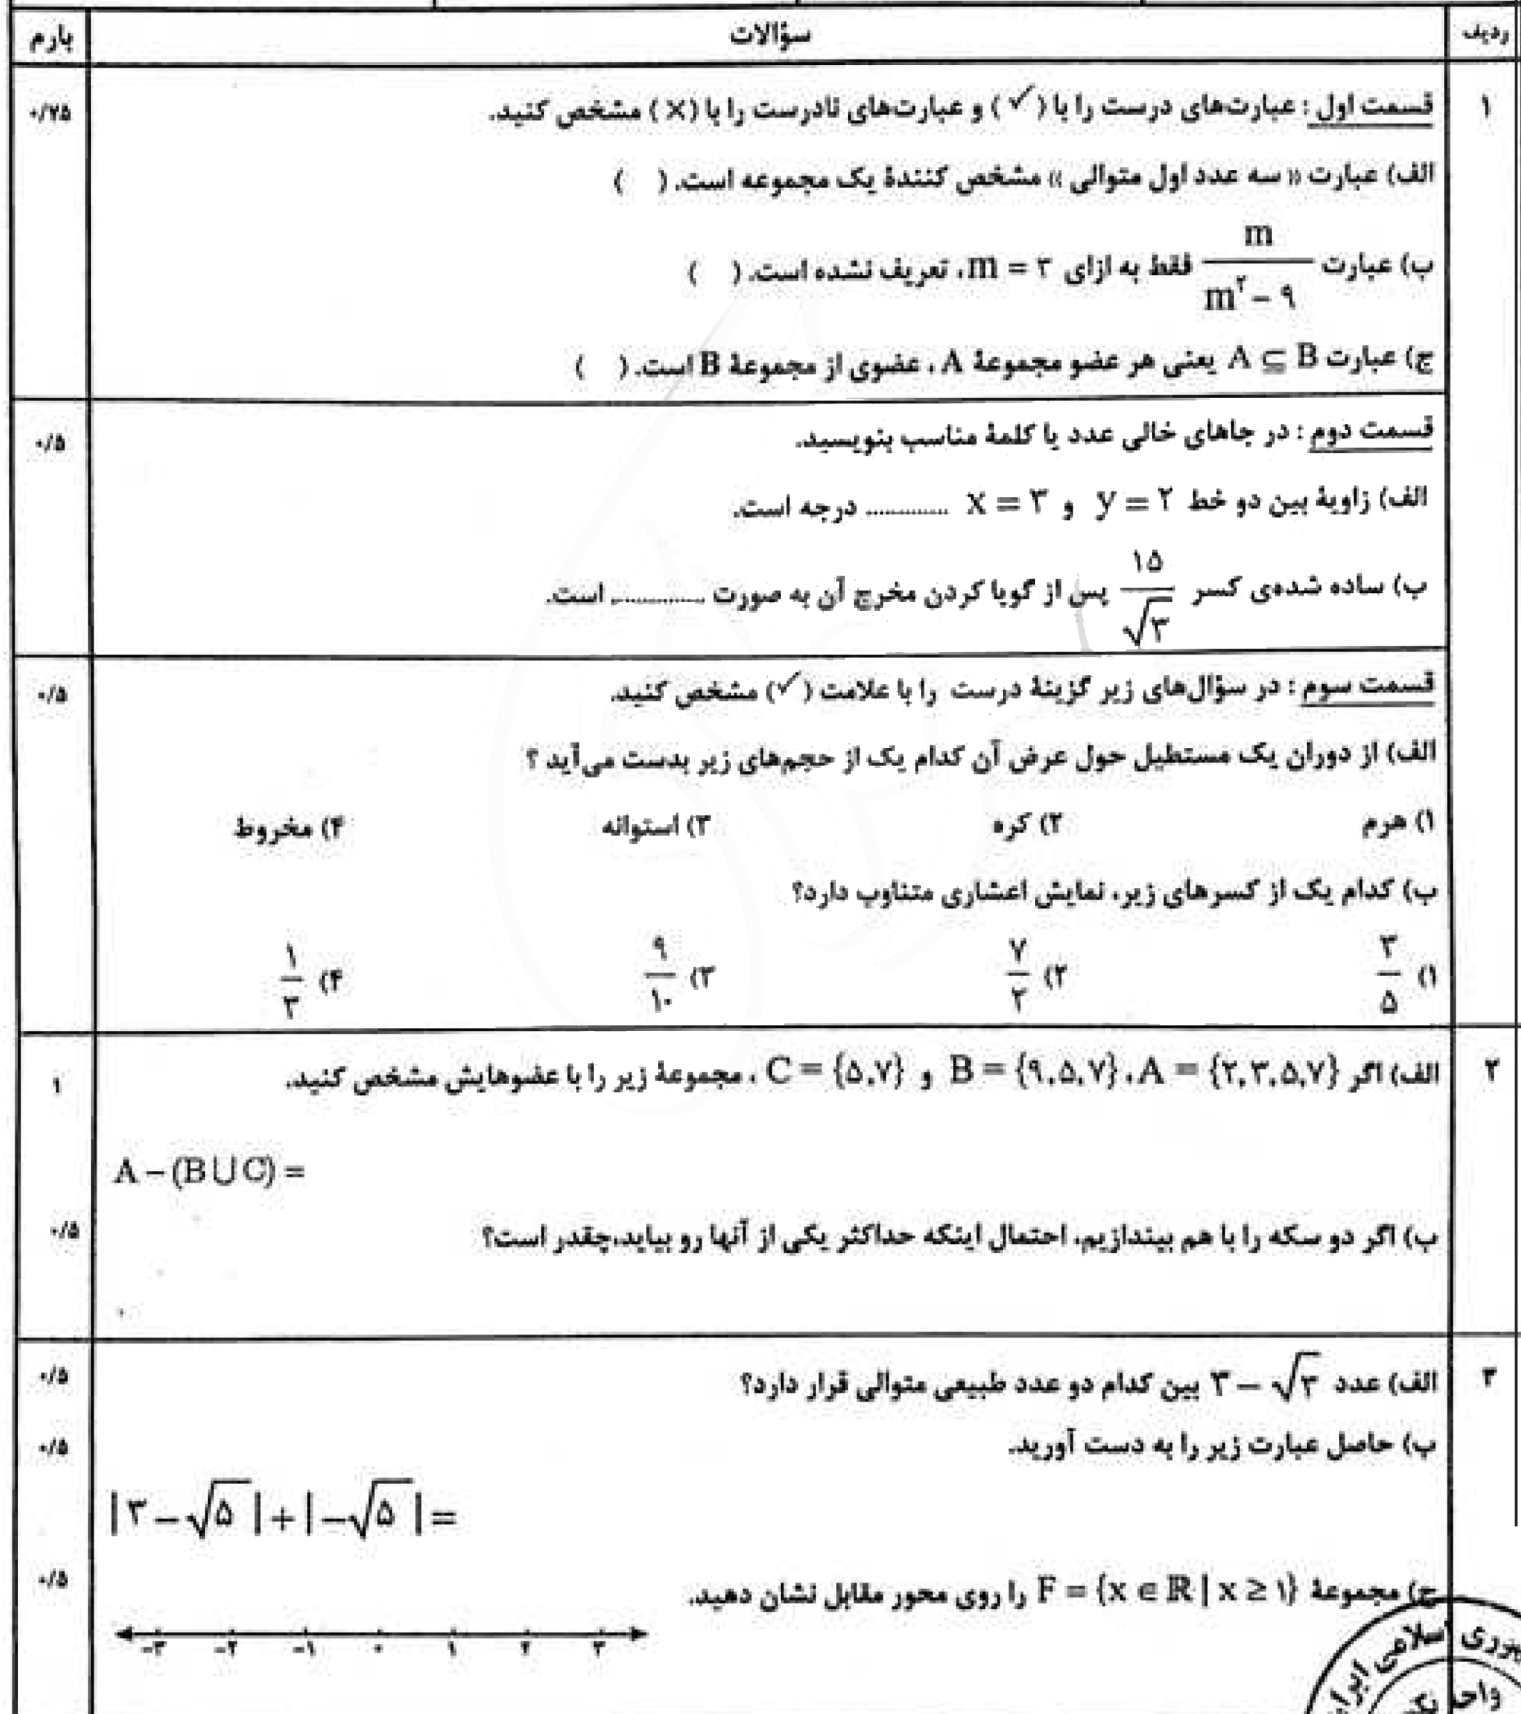 ردیف سؤالات بارم
۱ قسمت اول : عبارت‌های درست را با (✓) و عبارت‌های نادرست را با (×) مشخص کنید. ۰/۷۵
الف) عبارت « سه عدد اول متوالی » مشخص کنندهٔ یک مجموعه است. ( )
ب) عبارت m/(m^۲ − ۹) فقط به ازای m = ۳، تعریف نشده است. ( )
ج) عبارت A ⊆ B یعنی هر عضو مجموعهٔ A ، عضوی از مجموعهٔ B است. ( )
قسمت دوم : در جاهای خالی عدد یا کلمهٔ مناسب بنویسید. ۰/۵
الف) زاویهٔ بین دو خط y = ۲ و x = ۳ ............. درجه است.
ب) ساده شده‌ی کسر ۱۵/√۳ پس از گویا کردن مخرج آن به صورت ............... است.
قسمت سوم : در سؤال‌های زیر گزینهٔ درست را با علامت (✓) مشخص کنید. ۰/۵
الف) از دوران یک مستطیل حول عرض آن کدام یک از حجم‌های زیر بدست می‌آید ؟
۱) هرم ۲) کره ۳) استوانه ۴) مخروط
ب) کدام یک از کسرهای زیر، نمایش اعشاری متناوب دارد؟
۱) ۳/۵ ۲) ۷/۲ ۳) ۹/۱۰ ۴) ۱/۳
۲ الف) اگر A = {۲,۳,۵,۷} ، B = {۹,۵,۷} و C = {۵,۷} ، مجموعهٔ زیر را با عضوهایش مشخص کنید. ۱
A − (B ∪ C) =
ب) اگر دو سکه را با هم بیندازیم، احتمال اینکه حداکثر یکی از آنها رو بیاید،چقدر است؟ ۰/۵
۳ الف) عدد ۳ − √۳ بین کدام دو عدد طبیعی متوالی قرار دارد؟ ۰/۵
ب) حاصل عبارت زیر را به دست آورید. ۰/۵
|۳ − √۵| + |−√۵| =
ج) مجموعهٔ F = {x ∈ ℝ | x ≥ ۱} را روی محور مقابل نشان دهید. ۰/۵
−۳ −۲ −۱ ۰ ۱ ۲ ۳
اسلامی
واحد